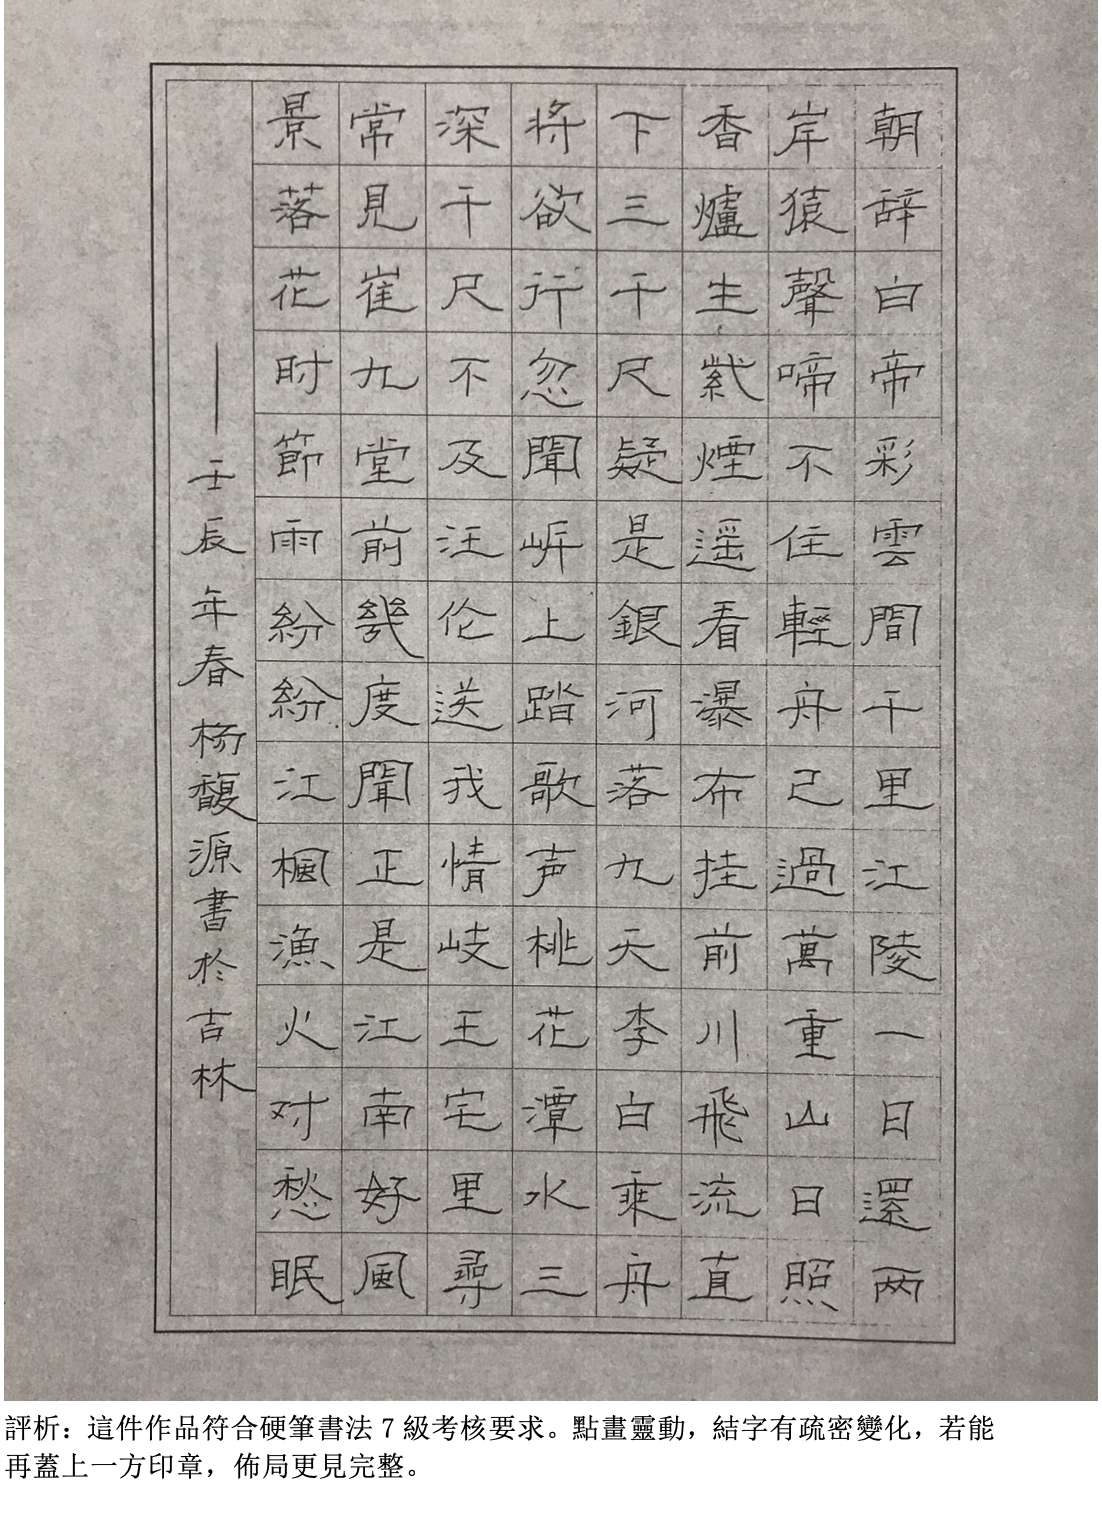 朝辞白帝彩雲間千里江陵一日還两
岸猿聲啼不住輕舟已過萬重山日照
香爐生紫煙遥看瀑布挂前川飛流直
下三千尺疑是銀河落九天李白乘舟
将欲行忽聞岍上踏歌声桃花潭水三
深千尺不及汪伦送我情岐王宅里尋
常見崔九堂前幾度聞正是江南好風
景落花时節雨紛紛江楓漁火对愁眠
——壬辰年春杨馥源書於吉林
評析：這件作品符合硬筆書法7級考核要求。點畫靈動，結字有疏密變化，若能
再蓋上一方印章，佈局更見完整。